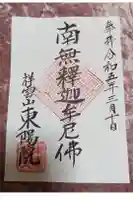 奉拝 令和五年三月十日
南無釋迦牟尼佛
祥雲山 東陽院